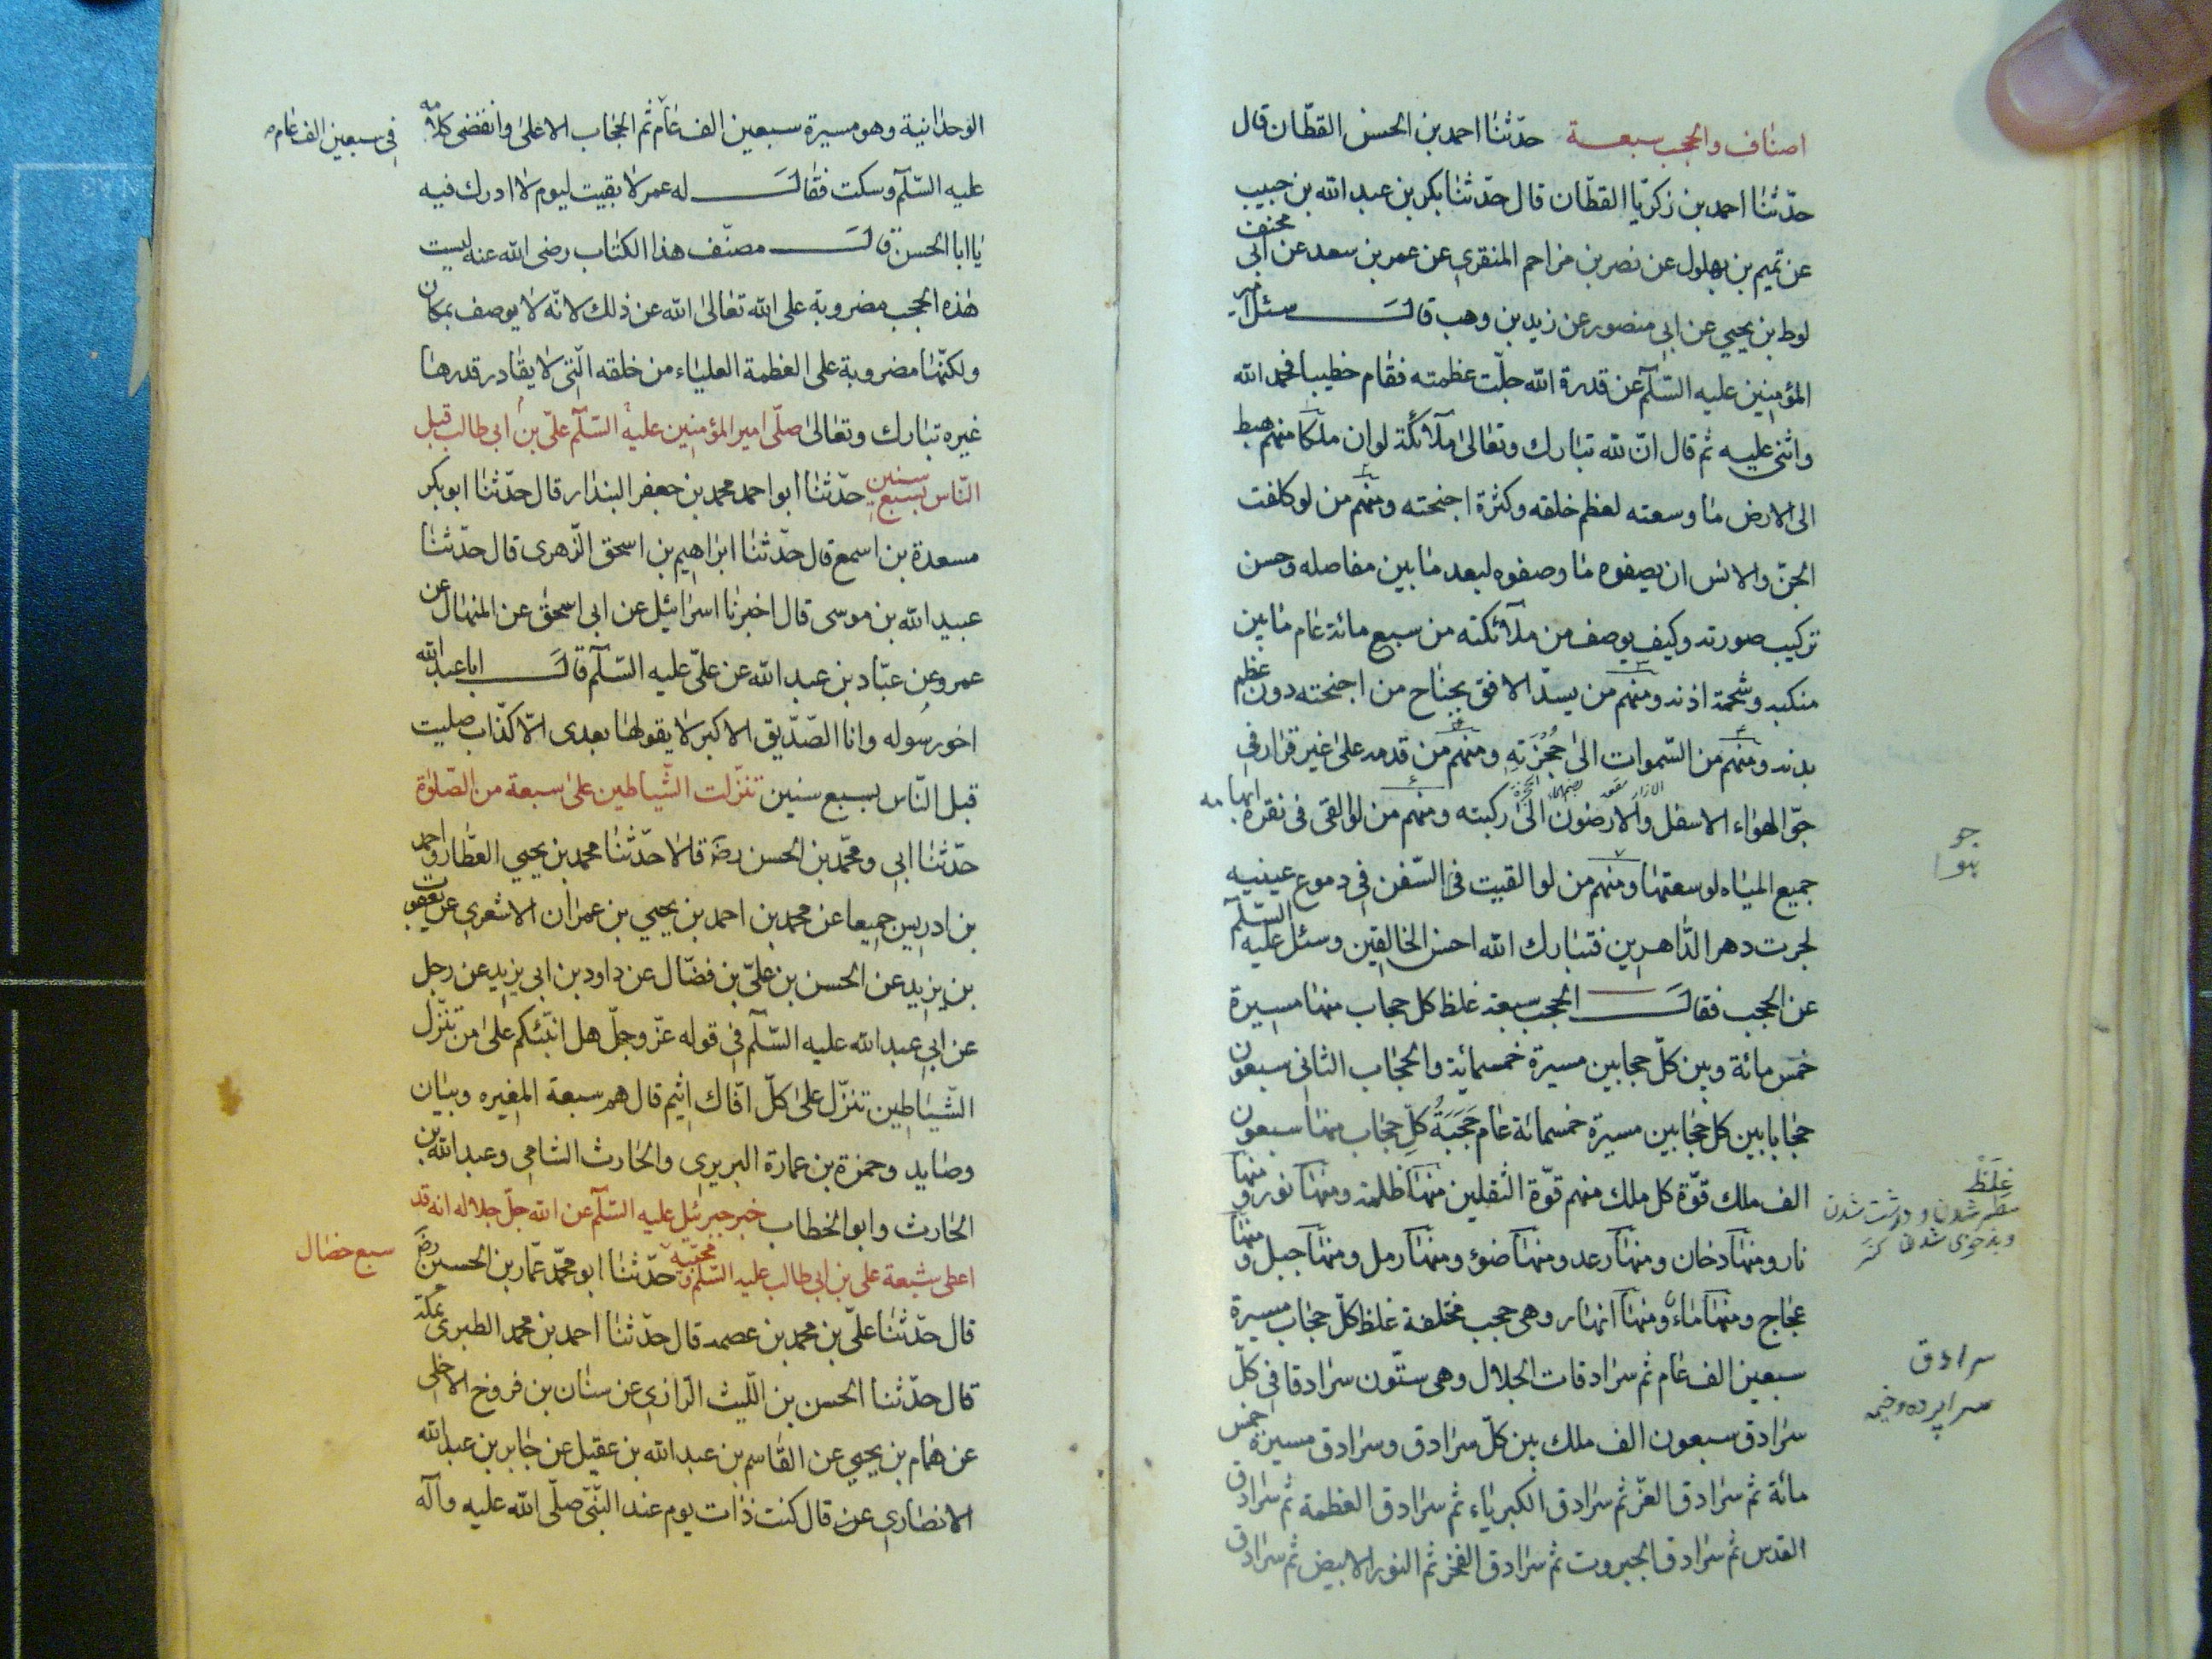 اصناف والحجب سبعة حدّثنا احمد بن الحسن القطّان قال
حدّثنا احمد بن زكريّا القطّان قال حدّثنا بكر بن عبد الله بن حبيب
عن تميم بن بهلول عن نصر بن مزاحم المنقري عن عمر بن سعد عن ابى مخنف
لوط بن يحيى عن ابى منصور عن زيد بن وهب قال سئل امير
المؤمنين عليه السّلام عن قدرة الله جلّت عظمته فقام خطيبا فحمد الله
واثنى عليه ثم قال انّ لله تبارك وتعالى ملآئكة لو ان ملكا منهم هبط
الى الارض ما وسعته لعظم خلقه وكثرة اجنحته ومنهم من لو كلفت
الجنّ والانس ان يصفوه ما وصفوه لبعد ما بين مفاصله وحسن
تركيب صورته وكيف يوصف من ملآئكته من سبع مائة عام ما بين
منكبه وشحمة اذنه ومنهم من يسدّ الافق بجناح من اجنحته دون عظم
بدنه ومنهم من السّموات الى حُجْزَتِهِ ومنهم من قدمه على غير قرار فى
جوّ الهواء الاسفل والارضون الى ركبته ومنهم من لو القى فى نقرة ابهامه
جميع المياه لوسعتها ومنهم من لو القيت فى السّفن فى دموع عينيه
لجرت دهر الدّاهرين فتبارك الله احسن الخالقين وسئل عليه السّلام
عن الحجب فقال الحجب سبعة غلظ كل حجاب منها مسيرة
خمس مائة وبين كلّ حجابين مسيرة خمسمائة والحجاب الثانى سبعون
حجابا بين كل حجابين مسيرة خمسمائة عام حَجَبَةُ كلِّ حجاب منها سبعون
الف ملك قوّة كل ملك منهم قوّة الثقلين منها ظلمة ومنها نور ومنها
نار ومنها دخان ومنها رعد ومنها ضوء ومنها رمل ومنها جبل ومنها
عجاج ومنها ماء ومنها انهار وهى حجب مختلفة غلظ كلّ حجاب مسيرة
سبعين الف عام ثم سرادقات الجلال وهى ستّون سرادقا فى كلّ
سرادق سبعون الف ملك بين كلّ سرادق وسرادق مسيرة خمس
مائة ثم سرادق العزّ ثم سرادق الكبرياء ثم سرادق العظمة ثم سرادق
القدس ثم سرادق الجبروت ثم سرادق الفخر ثم النور الابيض ثم سرادق
جو
غِلَظْ
سرادق
سراپرده وخيمه
الوحدانية وهو مسيرة سبعين الف عام ثم الحجاب الاعلى وانقضى كلامه
فى سبعين الف عام
عليه السّلام وسكت فقال له عمر لا بقيت ليوم لا ادرك فيه
يا ابا الحسن قال مصنّف هذا الكتاب رضى الله عنه ليست
هذه الحجب مضروبة على الله تعالى الله عن ذلك لانّه لا يوصف بمكان
ولكنّها مضروبة على العظمة العلياء من خلقه الّتى لا يقادر قدرها
غيره تبارك وتعالى صلّى امير المؤمنين عليه السّلام علىّ بن ابى طالب قبل
النّاس بسبع سنين حدّثنا ابو احمد محمد بن جعفر البندار قال حدّثنا ابو بكر
مسعدة بن اسمع قال حدّثنا ابراهيم بن اسحق الزّهرى قال حدّثنا
عبيد الله بن موسى قال اخبرنا اسرائيل عن ابى اسحق عن المنهال عن
عمرو عن عبّاد بن عبد الله عن علىّ عليه السّلام قال ابا عبد الله
اخو رسُوله وانا الصّدّيق الاكبر لا يقولها بعدى الّا كذّاب صليت
قبل النّاس بسبع سنين تنزّلت الشّياطين على سبعة من الصّلوة
حدّثنا ابى ومحمّد بن الحسن رضَ قالا حدّثنا محمد بن يحيى العطّار واحمد
بن ادريس جميعا عن محمد بن احمد بن يحيى بن عمران الاشعرى عن يعقوب
بن يزيد عن الحسن بن علىّ بن فضّال عن داود بن ابى يزيد عن رجل
عن ابى عبد الله عليه السّلام فى قوله عزّ وجلّ هل انبّئكم على من تنزّل
الشّياطين تنزّل على كلّ افّاك اثيم قال هم سبعة المغيره وبيان
وصايد وحمزة بن عمارة البريرى والحارث الشامى وعبد الله بن
الحارث وابو الخطاب خبر جبرئيل عليه السّلام عن الله جلّ جلاله انه قد
اعطى شيعة على بن ابى طالب عليه السّلم ومحبّيه حدّثنا ابو محمّد عمّار بن الحسين رضَ
سبع خصال
قال حدّثنا علىّ بن محمد بن عصمه قال حدّثنا احمد بن محمد الطبرى بمكة
قال حدّثنا الحسن بن اللّيث الرّازى عن سنان بن فروخ الاخلى
عن همام بن يحيى عن القاسم بن عبد الله بن عقيل عن جابر بن عبد الله
الانصارى عن قال كنت ذات يوم عند النّبىّ صلّى الله عليه وآله